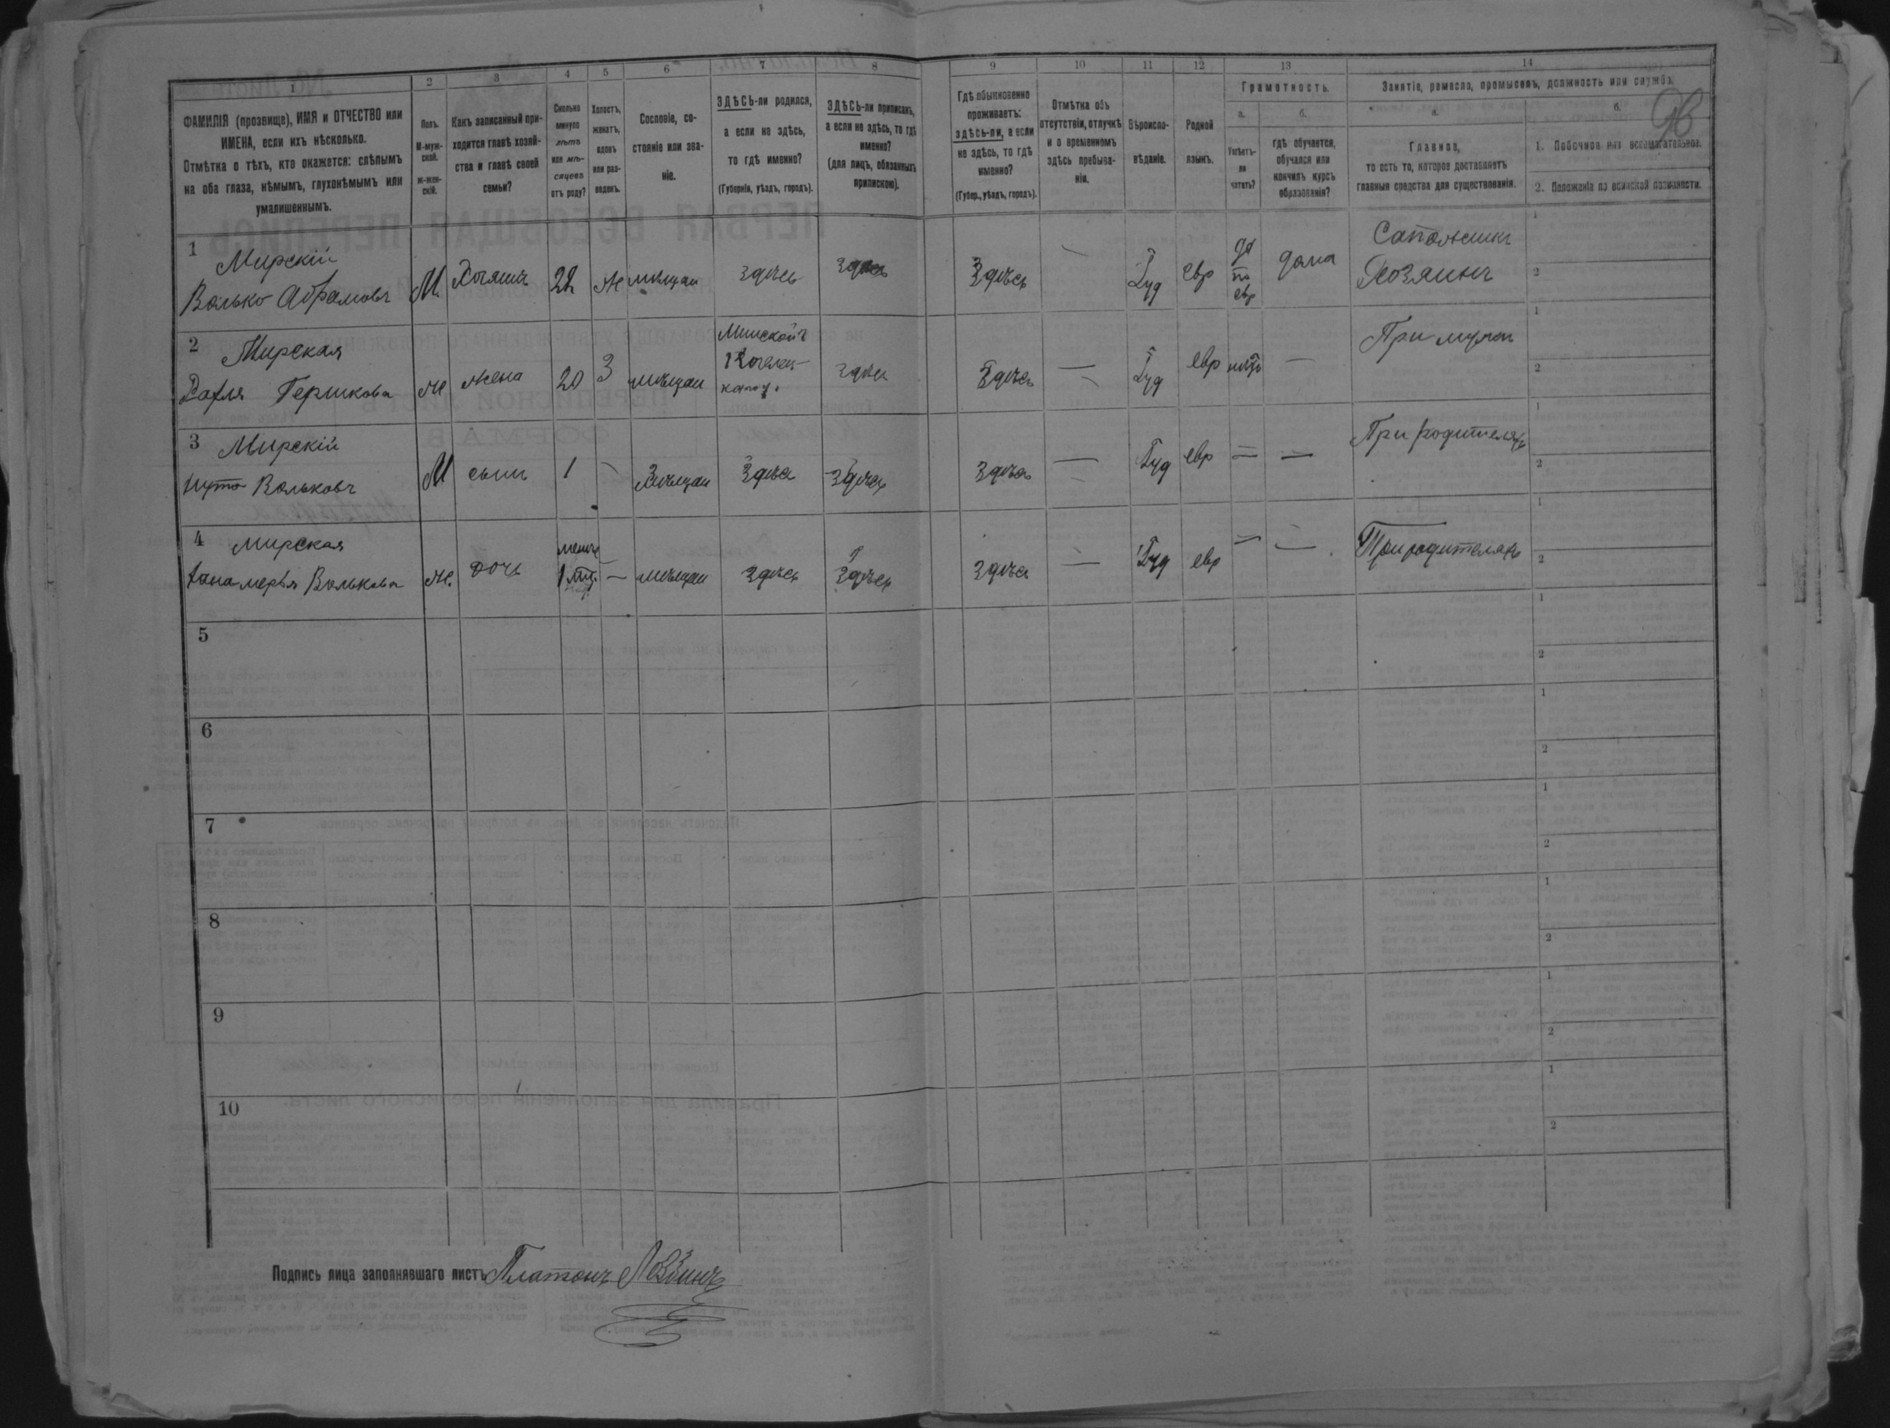 1 2 3 4 5 6 7 8 9 10 11 12 13 14
ФАМИЛІЯ (прозвище), ИМЯ и ОТЧЕСТВО или
ИМЕНА, если ихъ нѣсколько.
Отмѣтка о тѣхъ, кто окажется: слѣпымъ
на оба глаза, нѣмымъ, глухонѣмымъ или
умалишеннымъ.
Полъ.
М-муж-
ской.
ж-жен-
скій.
Какъ записанный при-
ходится главѣ хозяй-
ства и главѣ своей
семьи?
Сколько
минуло
лѣтъ
или мѣ-
сяцевъ
отъ роду?
Холостъ,
женатъ,
вдовъ
или раз-
веденъ.
Сословіе, со-
стояніе или зва-
ніе.
ЗДѢСЬ-ли родился,
а если не здѣсь,
то гдѣ именно?
(Губернія, уѣздъ, городъ).
ЗДѢСЬ-ли приписанъ,
а если не здѣсь, то гдѣ
именно?
(для лицъ, обязанныхъ
припискою).
Гдѣ обыкновенно
проживаетъ:
здѣсь-ли, а если
не здѣсь, то гдѣ
именно?
(Губер., уѣздъ, городъ).
Отмѣтка объ
отсутствіи, отлучкѣ
и о временномъ
здѣсь пребыва-
ніи.
Вѣроиспо-
вѣданіе.
Родной
языкъ.
Грамотность.
а.
Умѣетъ-
ли
читать?
б.
гдѣ обучается,
обучался или
кончилъ курсъ
образованія?
Занятіе, ремесло, промыселъ, должность или служба.
а.
Главное,
то есть то, которое доставляетъ
главныя средства для существованія.
б.
1. Побочное или вспомогательное.
2. Положеніе по воинской повинности.
1 Мирскій
Волько Абрамовъ М Хозяинъ 22 ж мѣщан здѣсь здѣсь здѣсь Іуд евр да по евр дома Сапожникъ
Хозяинъ
2 Мирская
Гершкова ж жена 20 З мѣщан Минской здѣсь здѣсь — Іуд евр нѣтъ — При мужѣ
3 Мирскій
Вольковъ М сынъ 1 — мѣщан здѣсь здѣсь здѣсь — Іуд евр — — При родителяхъ
4 Мирская
Волькова ж. дочь менѣе 1 — мѣщан здѣсь здѣсь здѣсь — Іуд евр — — При родителяхъ
5
6
7
8
9
10
Подпись лица заполнявшаго листъ Платонъ